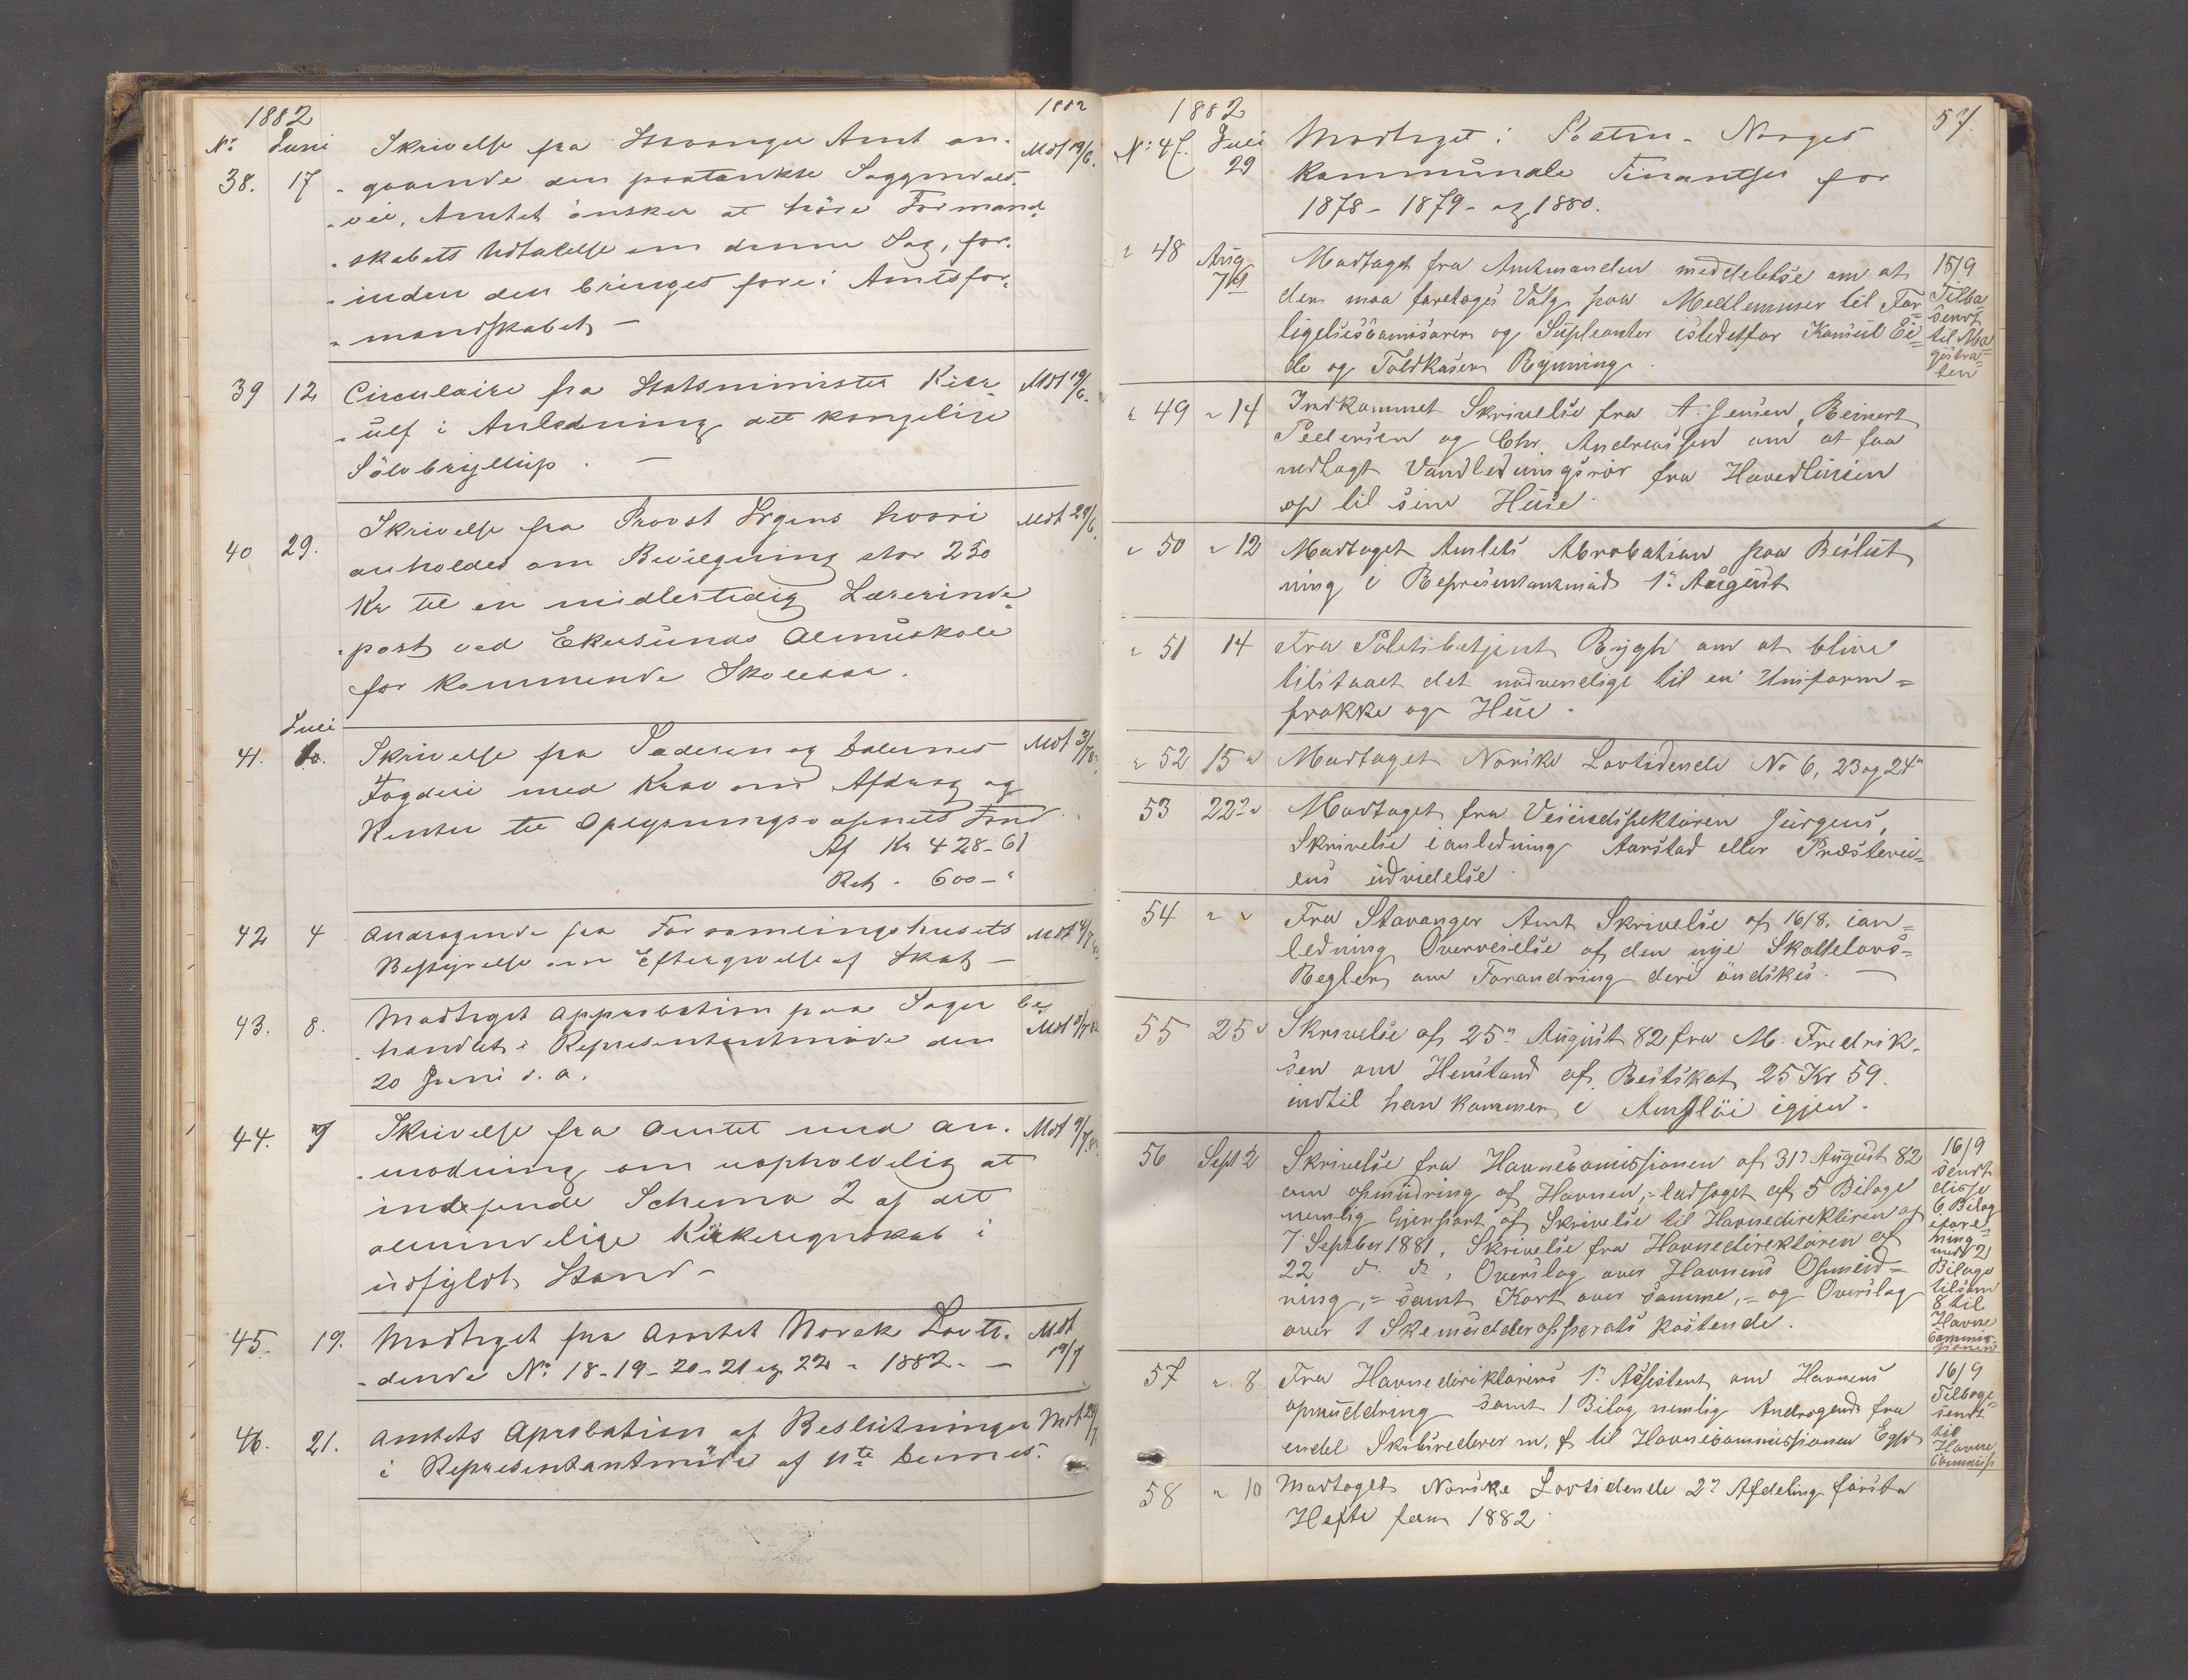 1882
1882
No Juni Skrivelse fra Stavanger Amt an-
Mdt 19/6.
38. 17 - gaaende den paatænkte Soggendals-
- vei, Amtet ønsker at høre Formand-
- skabets Udtalelse om denne Sag, for-
- inden den bringes fore i Amtsfor-
- mandskabet, —
39 12 Circulaire fra Statsminister Kier- Mdt 19/6.
- ulf i Anledning det kongelige
Sölvbryllup. —
40 29. Skrivelse fra Provst Irgens hvori Mdt 29/6.
anholdes om Bevilgning stor 250
Kr til en midlertidig Lærerinde-
- post ved Ekersunds Almuskole
for kommende Skoleaar.
Juli
41. 1. Skrivelse fra Jæderen og Dalernes Mdt 3/7 82
Fogderi med Krav om Afdrag og
Renter til Oplysningsvæsenets Fond.
Af Kr 428-61
Ret. 600 – "
42 4 Andragende fra Forsamlingshusets Mdt 4/7 82
Bestyrelse om Eftergivelse af Skat —
43. 8. Modtaget Approbation paa Sager be- Mdt 8/7 82
- handlet i Representantmøde den
20 Juni d. a.
44. 7 Skrivelse fra Amtet med An- Mdt 9/7 82
- modning om uopholdelig at
indsende Schema 2 af det
almindelige Kirkeregnskab i
udfyldt Stand –
45. 19. Modtaget fra Amtet Norsk Lovti- Mdt
- dende No 18-19-20-21 og 22 - 1882. — 19/7
46. 21. Amtets Aprobation af Beslutninger Mdt 24/7
i Representantmøde af 11te dennes.
1882
57.
No 47. Juli Modtaget i Posten - Norges
29 Kommunale Finantser for
1878 - 1879 - og 1880.
" 48 Aug 7de Modtaget fra Amtmanden meddelelse om at 15/9
der maa foretages Valg paa Medlemmer til For- Tilba
ligelsescomisionen og Supleanter istedetfor Konsul Ei- sendt til Ma-
de og Toldkaserer Bynning. gistra-
ten
" 49 " 14 Indkommet Skrivelse fra A. Jensen, Reinert
Pedersen og Chr. Andreassen om at faa
nedlagt Vandledningsrör fra Hovedlinien
op til sine Huse.
" 50 " 12 Modtaget Amtets Abrobation paa Beslut
ning i Represantantmöde 1e August
" 51 14 Fra Politibetjent Rygh om at blive
tilstaaet det nødvendige til en Uniform-
frakke og Hue.
" 52 15 " Modtaget Norske Lovtidende No 6, 23 og 24"
53 22de Modtaget fra Veiinspektören Jürgens,
Skrivelse i anledning Aarstad eller Præstevei-
ens udvidelse.
54 " " Fra Stavanger Amt Skrivelse af 16/8. ian-
ledning Overveielse af den nye Skattelovs-
Regler, om Forandring deri öndskes. —
55 25 " Skrivelse af 25de August 82 fra M. Fredrik-
sen om Henstand af Restskat 25 Kr 59.
indtil han kommer i Arbeide igjen.
56 Sept 2 Skrivelse fra Havnecomissionen af 31 August 82 16/9
om opmudring af Havnen, - ledsaget af 5 Bilage sendt
nemlig Gjenpart af Skrivelse til Havnedirektören af disse 6 Bilag
7 Septber 1881, Skrivelse fra Havnedirektören af
22 d. d., Overslag over Havnens Opmud- med 2
ning, - samt Kort over samme, - og Overslag Bilage tilsam
over 1 Skemudderapperats kostende. 8 til
Havne
Commis-
sionen
57 " 8 Fra Havnedirektörens 1e Assistent om Havnens 16/9
opmuddring samt 1 Bilag nemlig Andragende fra Tilbage-
endel Skibsredere m. f. til Havnecommissionen Egsd sendt
til
Havne
Commiss
58 " 10 Modtaget Norske Lovtidende 2de Afdeling første
Hefte for 1882.